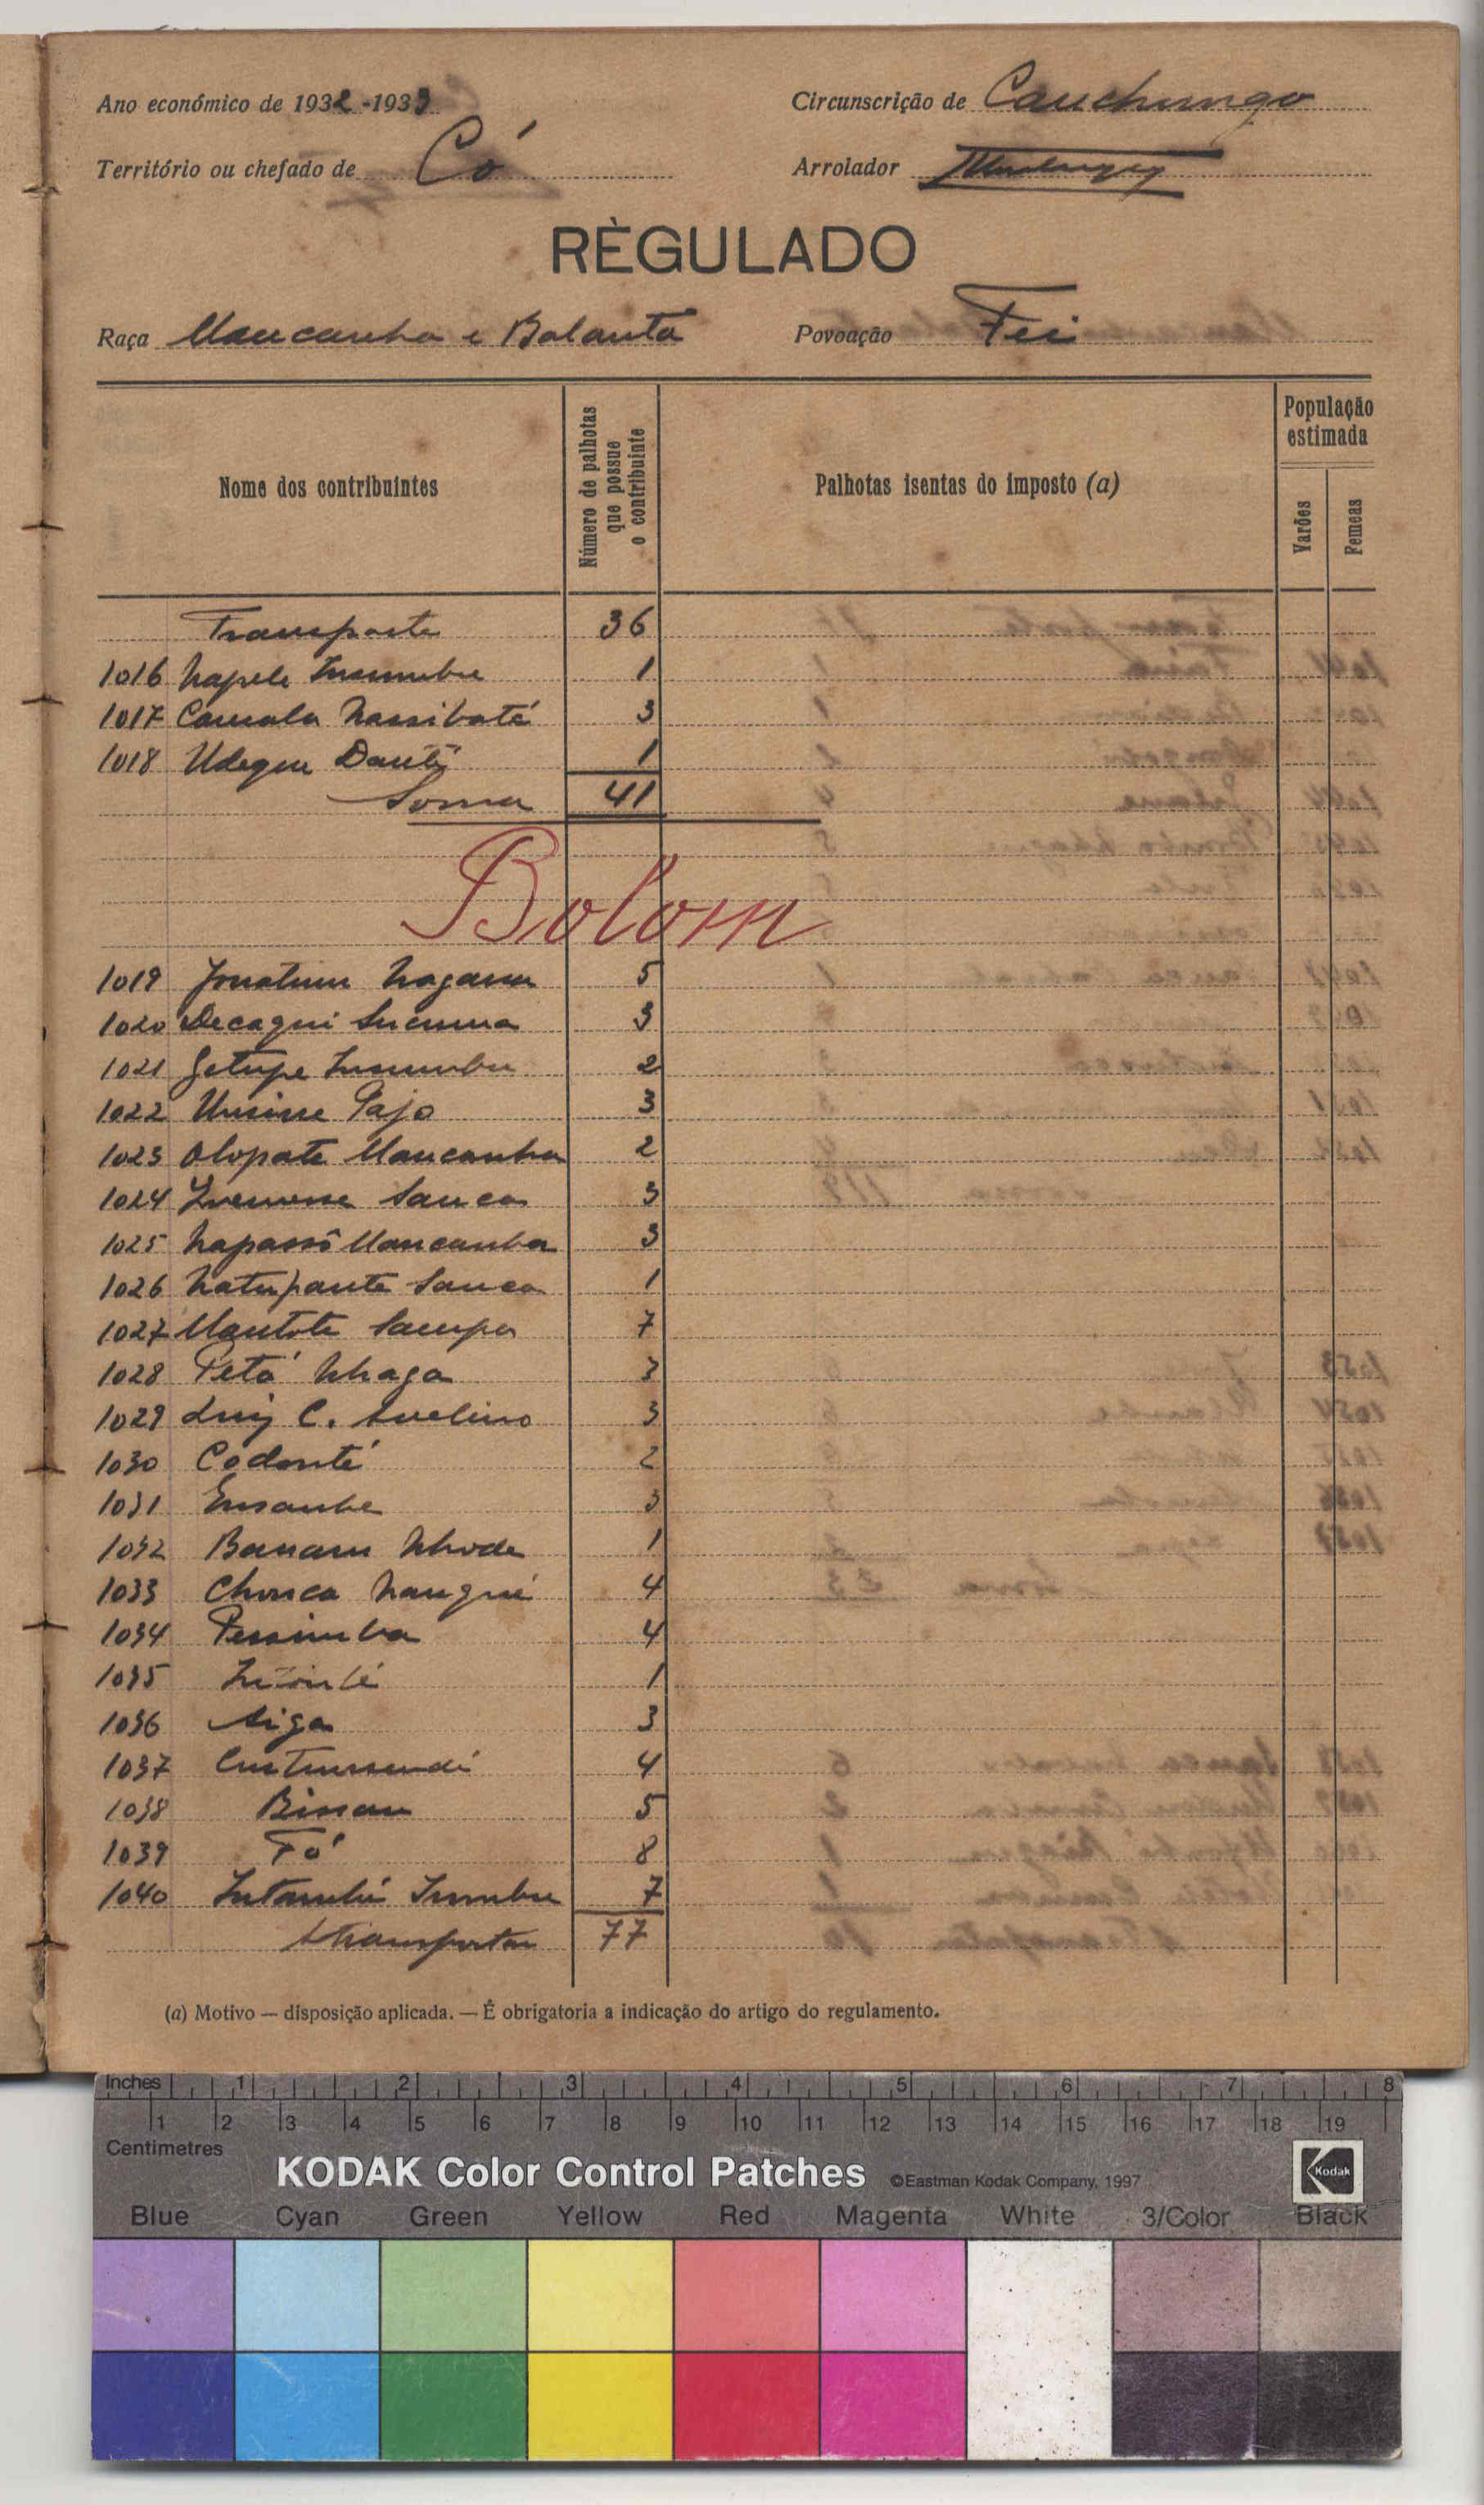 Ano económico de 1932-1933
Circunscrição de Canchungo
Território ou chefado de Có
Arrolador
RÈGULADO
Raça Mancanha e Balanta
Povoação Fei
Nome dos contribuintes
Número de palhotas que possue o contribuinte
Palhotas isentas do imposto (a)
População estimada
Varões
Femeas
Transporte 36
1016 Napele 1
1017 Camala Nassibaté 3
1018 Udegue 1
Soma 41
Bolom
1019 5
1020 Decagui 3
1021 Getupe 2
1022 Unsine Pajo 3
1023 Olopate Mancanha 2
1024 Sanca 3
1025 Napassô Mancanha 3
1026 Natupante Sanca 1
1027 Mantote Sampa 7
1028 Petá Nhaga 3
1029 Luiz C. Avelino 3
1030 Codonté 2
1031 3
1032 Nhode 1
1033 Chonca Nangué 4
1034 Pessimba 4
1035 1
1036 3
1037 4
1038 Bissau 5
1039 Fó 8
1040 7
A transportar 77
(a) Motivo — disposição aplicada. — É obrigatoria a indicação do artigo do regulamento.
Inches 1 2 3 4 5 6 7 8
1 2 3 4 5 6 7 8 9 10 11 12 13 14 15 16 17 18 19
Centimetres
KODAK Color Control Patches ©Eastman Kodak Company, 1997 Kodak
Blue Cyan Green Yellow Red Magenta White 3/Color Black